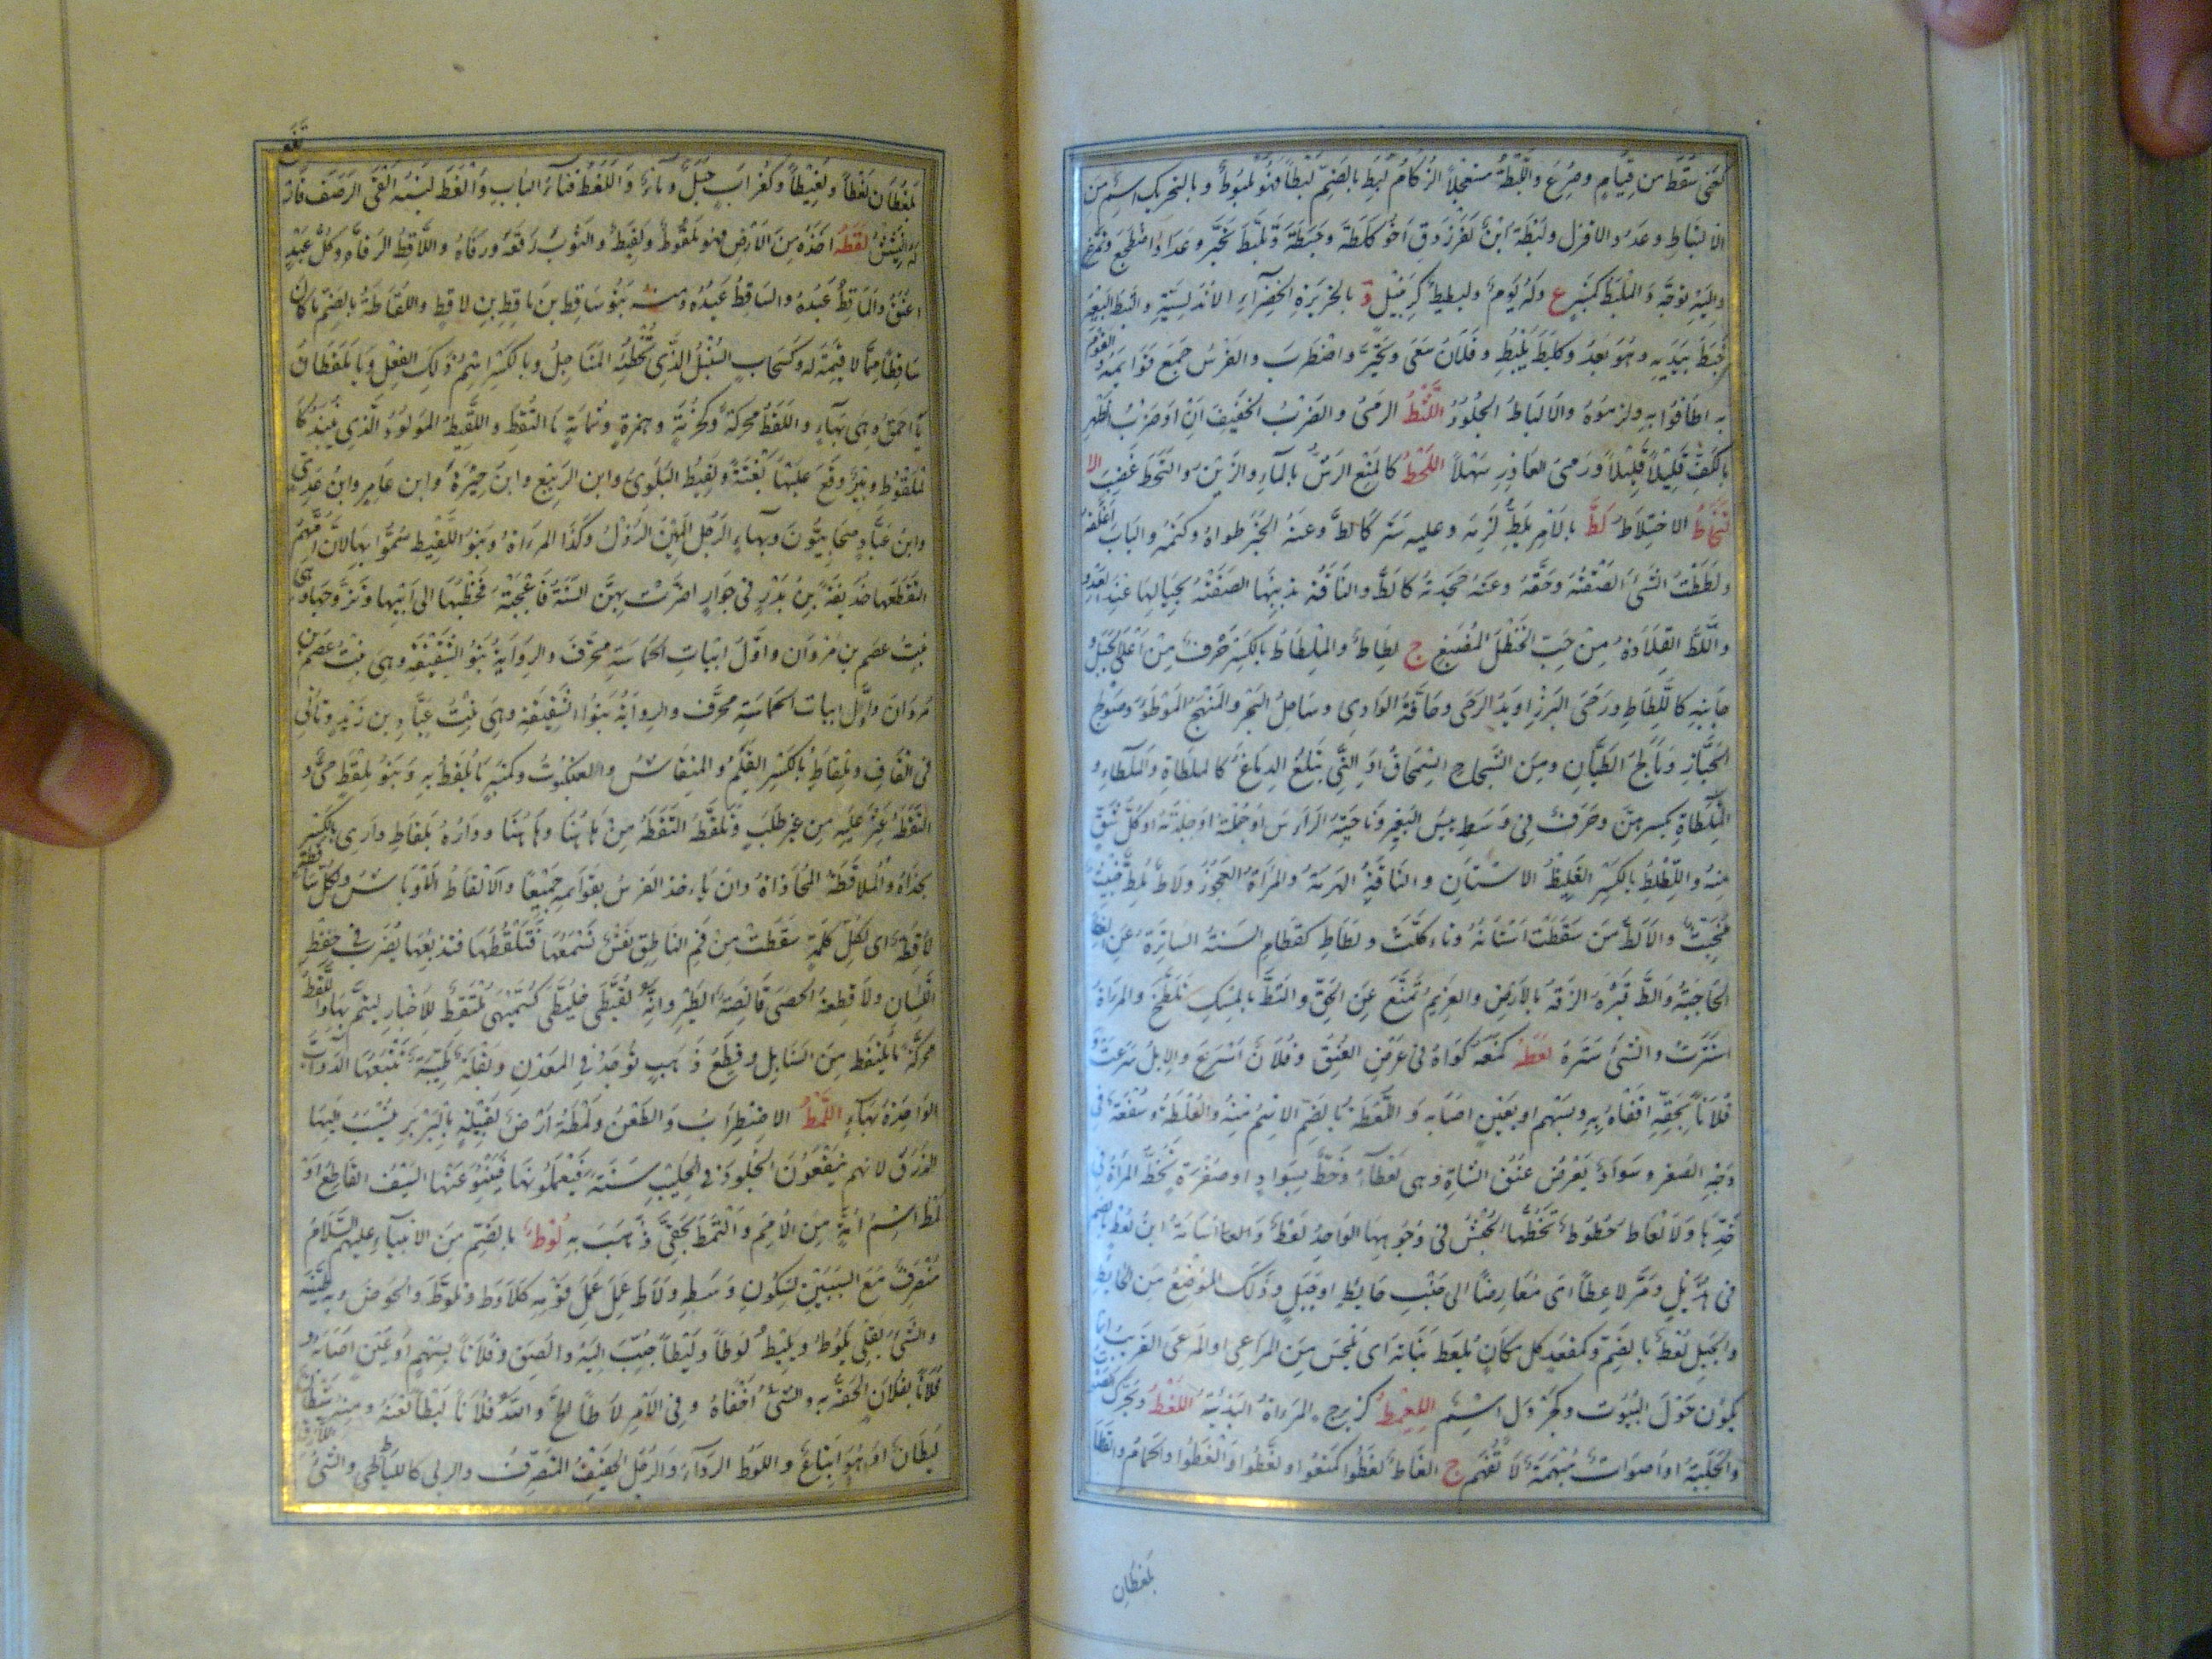 كعنى سقط من قيام وصرع واللبطة مستعجلاً الزكام لبط بالضم لبطا فهو ملبوط وبالتحريك اسم من
الالتباط وعدو الاقزل ولبطة ابن لفرزدق اخو كلطة وحبطة وتلبط تحير وعدا واضطجع وتمرغ
واليه توجه والملبط كمنبر ع وله يوم ولبطيط كزنجبيل د بالجزيرة الخضراء الاندلسية والتبط البعير
خبط بيديه وهو يعدو كلبط يلبط وفلان سعى وتحير واضطرب والفرس جمع قوائمه و القوم
به اطافوا به ولزموه والالباط الجلود اللثط الرمى والضرب الخفيف او ضرب الظهر
بالكف قليلاً قليلاً ورمى العاذر سهلاً اللحط كالمنع الرش بالماء والزبن والتحط غضب الا
لتخاط الاختلاط لط بالامر يلط لزمه وعليه ستر كالط وعنه الخبر طواه وكتمه والباب اغلقه
ولططت الشئ الصقته وحقه وعنه جحدته كالط والناقة بذنبها الصقته بحيائها عند العدو
واللط القلادة من حب الحنظل المصبغ ج لطاط والملطاط بالكسر حرف من اعلى الجبل و
جانبه كاللطاط ورحى البزر او يد الرحى وحافة الوادى وساحل البحر والمنهج الموطوء وصوبج
الخباز ومالج الطيان ومن الشجاج السمحاق او التى تبلغ الدماغ كالملطاة والملطاء و
الملطاة بكسرهن وحرف فى وسط راس البعير وناحية الراس او جملته او جلدته او كل شق
منه واللطلط بالكسر الغليظ الاسنان والناقة الهرمة والمراة العجوز ولاط ملط خبيث
مخبث والالط من سقطت اسنانه وتاكلت ولطاط كقطام السنة الساترة عن العطاء
الحاجبة والط قبره الزقه بالارض والغريم تمنع عن الحق والتط بالمسك تلطخ والمراة
استترت والشئ ستره لعطه كمنعه كواه فى عرض العنق وفلان اسرع والابل رعت و
فلانا بحقه اتقاه به وبسهم او بعين اصابه واللعطة بالضم الاسم منه والعلطة وسفعة فى
وجه الصقر وسواد بعرض عنق الشاة وهى لعطاء وخط بسواد او صفرة تخطه المراة فى
خدها والالعاط خطوط تخطها الحبش فى وجوهها الواحد لعط ابن لعط بالضم
فى هذيل ومر لاعطا اى معارضا الى جنب حائط او جبل وذلك الموضع من الحائط
والجبل لعط بالضم وكمقعد كل مكان يلعط نباته اى يلحس من المراعى او المرعى القريب انما
يكون حول البيوت وكجرول اسم اللعمط كزبرج المراة البذية اللغط ويحرك الصوت
والجلبة او اصوات مبهمة لا تفهم ج الغاط لغطوا كمنعوا ولغطوا والغطوا والحمام والقطا
يلغطان
يلغطان لغطا ولغيطا وكغراب جبل وماء واللغط فناء الباب والغط لبنه القى الرضف فانه
له نشيش لقطه اخذه من الارض فهو ملقوط ولقيط والثوب رقعه ورفاه واللاقط الرفاء وكل عبد
اعتق والماقط عبده والساقط عبده ومنه بنو ساقط بن ماقط بن لاقط واللقاطة بالضم ما كان
ساقطا مما لا قيمة له وكسحاب السنبل الذى تخطئه المناجل وبالكسر اسم ذلك الفعل ويا ملقطان
يا احمق وهى بهاء واللقط محركة وكحزمة وهمزة وثمامة ما التقط واللقيط المولود الذى ينبذ كا
لملقوط وبئر وقع عليها بغتة ولقيط البلوى وابن الربيع وابن صبرة وابن عامر وابن عدى
وابن عباد صحابيون وبهاء الرجل المهين الرذل وكذا المراة وبنو اللقيطة سموا بها لان امهم
التقطها حذيفة بن بدر فى جوار اضرت بهن السنة فاعجبته فخطبها الى ابيها وتزوجها وهى
بنت عصم بن مروان واول ابيات الحماسة محرف والرواية بنو الشقيقة وهى بنت عصم بن
مروان واول ابيات الحماسة محرف والرواية بنو الشقيقة وهى بنت عباد بن زيد وتاتى
فى القاف وملقاط بالكسر القلم والمنقاش والعنكبوت وكمنبر ما يلقط به وبنو ملقط حى و
التقطه عثر عليه من غير طلب وتلقط التقطه من هاهنا وهاهنا وداره بلقاط دارى بالكسر
بحذاه والملاقطة المحاذاة وان ياخذ الفرس بقوائمه جميعا والالقاط الاوباش ولكل ساقطة
لاقطة اى لكل كلمة سقطت من فم الناطق نفس تسمعها فتلقطها فتذيعها يضرب فى حفظ
اللسان ولاقطة الحصى قانصة الطير وانه لقيطى خليطى كسميهى ملتقط للاخبار لينم بها واللقط
محركة ما يلتقط من السنابل وقطع ذهب توجد فى المعدن وبقلة طيبة تتبعها الدواب
الواحدة بهاء اللمط الاضطراب والطعن ولمطة ارض لقبيلة بالبربر ينسب اليها
الدرق لانهم ينقعون الجلود فى الحليب سنة فيعملونها فينبو عنها السيف القاطع او
لمط اسم امة من الامم والتمط بحقى ذهب به لوط بالضم من الانبياء عليهم السلام
منصرف مع السببين لسكون وسطه ولاط عمل عمل قومه كلاوط وتلوط والحوض وبه طينه
والشئ بقلبى يلوط ويليط لوطا وليطا حبب اليه والصق وفلانا بسهم او عين اصابه و
فلانا بفلان الحقه به والشئ اخفاه وفى الامر لاطا الح والله فلانا ليطا لعنه ومنه شيطان
ليطان او هو اتباع واللوط الرداء والرجل الخفيف المتصرف والربى كاللياط والشئ اللازق